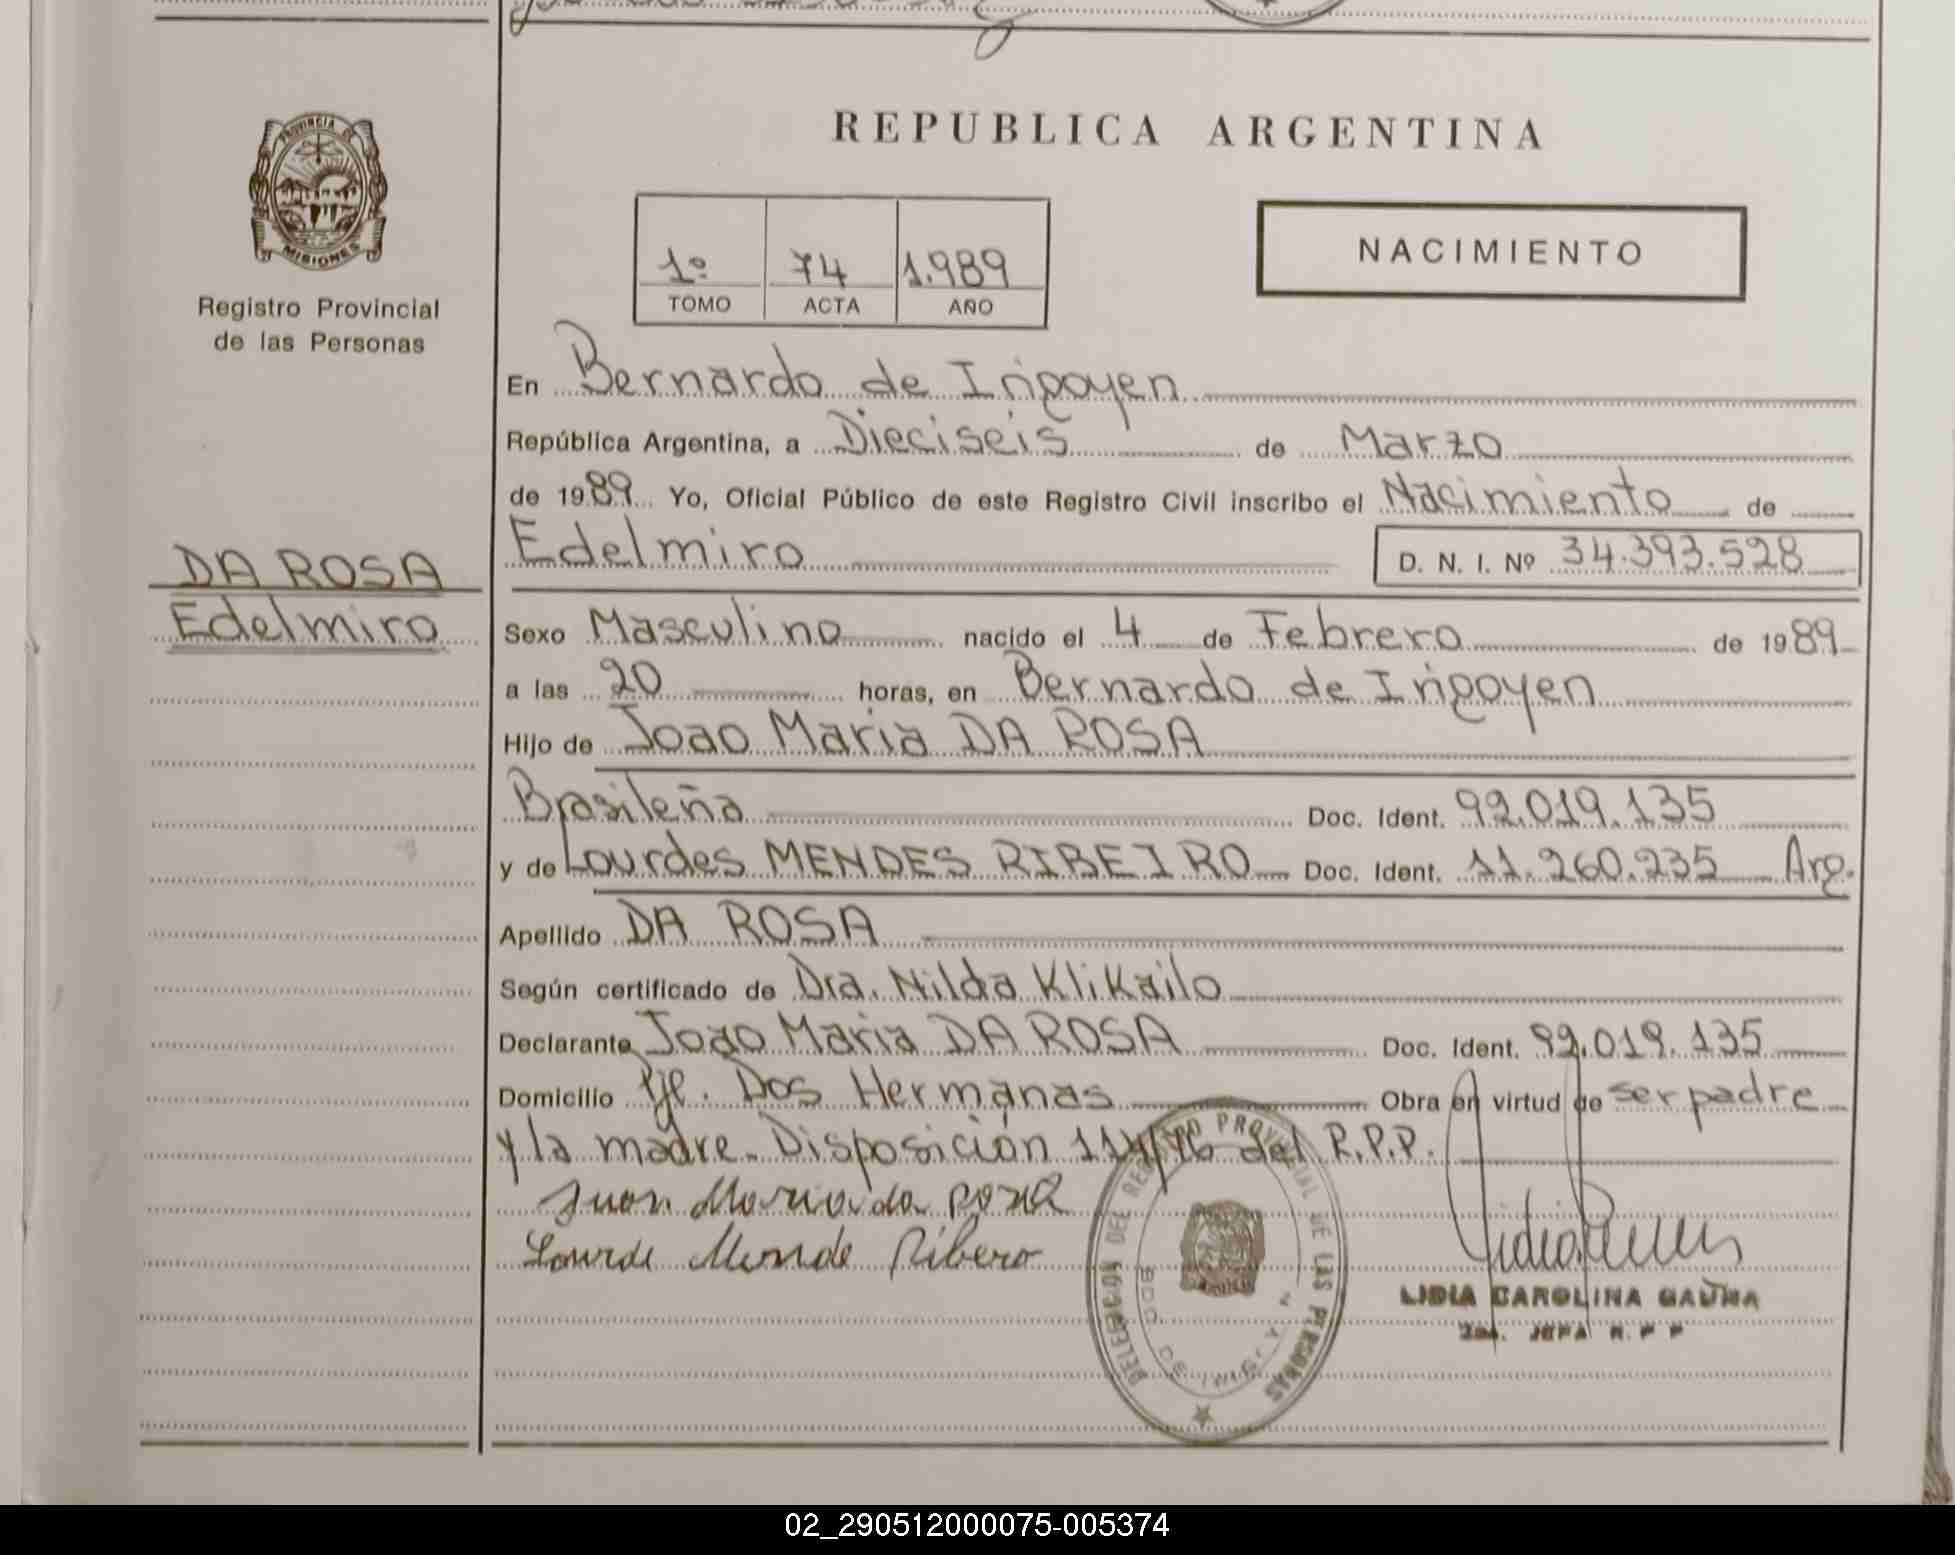 PROVINCIA DE
MISIONES
Registro Provincial
de las Personas
DA ROSA
Edelmiro
REPUBLICA ARGENTINA
1º 74 1.989
TOMO ACTA AÑO
NACIMIENTO
En Bernardo de Irigoyen
República Argentina, a Dieciseis de Marzo
de 1989 Yo, Oficial Público de este Registro Civil inscribo el Nacimiento de
Edelmiro D. N. I. Nº 34.393.528
Sexo Masculino nacido el 4 de Febrero de 1989
a las 20 horas, en Bernardo de Irigoyen
Hijo de Joao Maria DA ROSA
Brasileña Doc. Ident. 92.019.135
y de Lourdes MENDES RIBEIRO Doc. Ident. 11.260.235 Arg.
Apellido DA ROSA
Según certificado de Dra. Nilda Klikailo
Declarante Joao Maria DA ROSA Doc. Ident. 92.019.135
Domicilio Pje. Dos Hermanas Obra en virtud de ser padre
y la madre. Disposición 114/76 del R.P.P.
Juan Maria da Rosa
Lourde Mende Ribero
DELEGACION DEL REGISTRO PROVINCIAL DE LAS PERSONAS
BDO. DE IRIGOYEN
LIDIA CAROLINA GAUNA
JEFA R. P. P
02_290512000075-005374